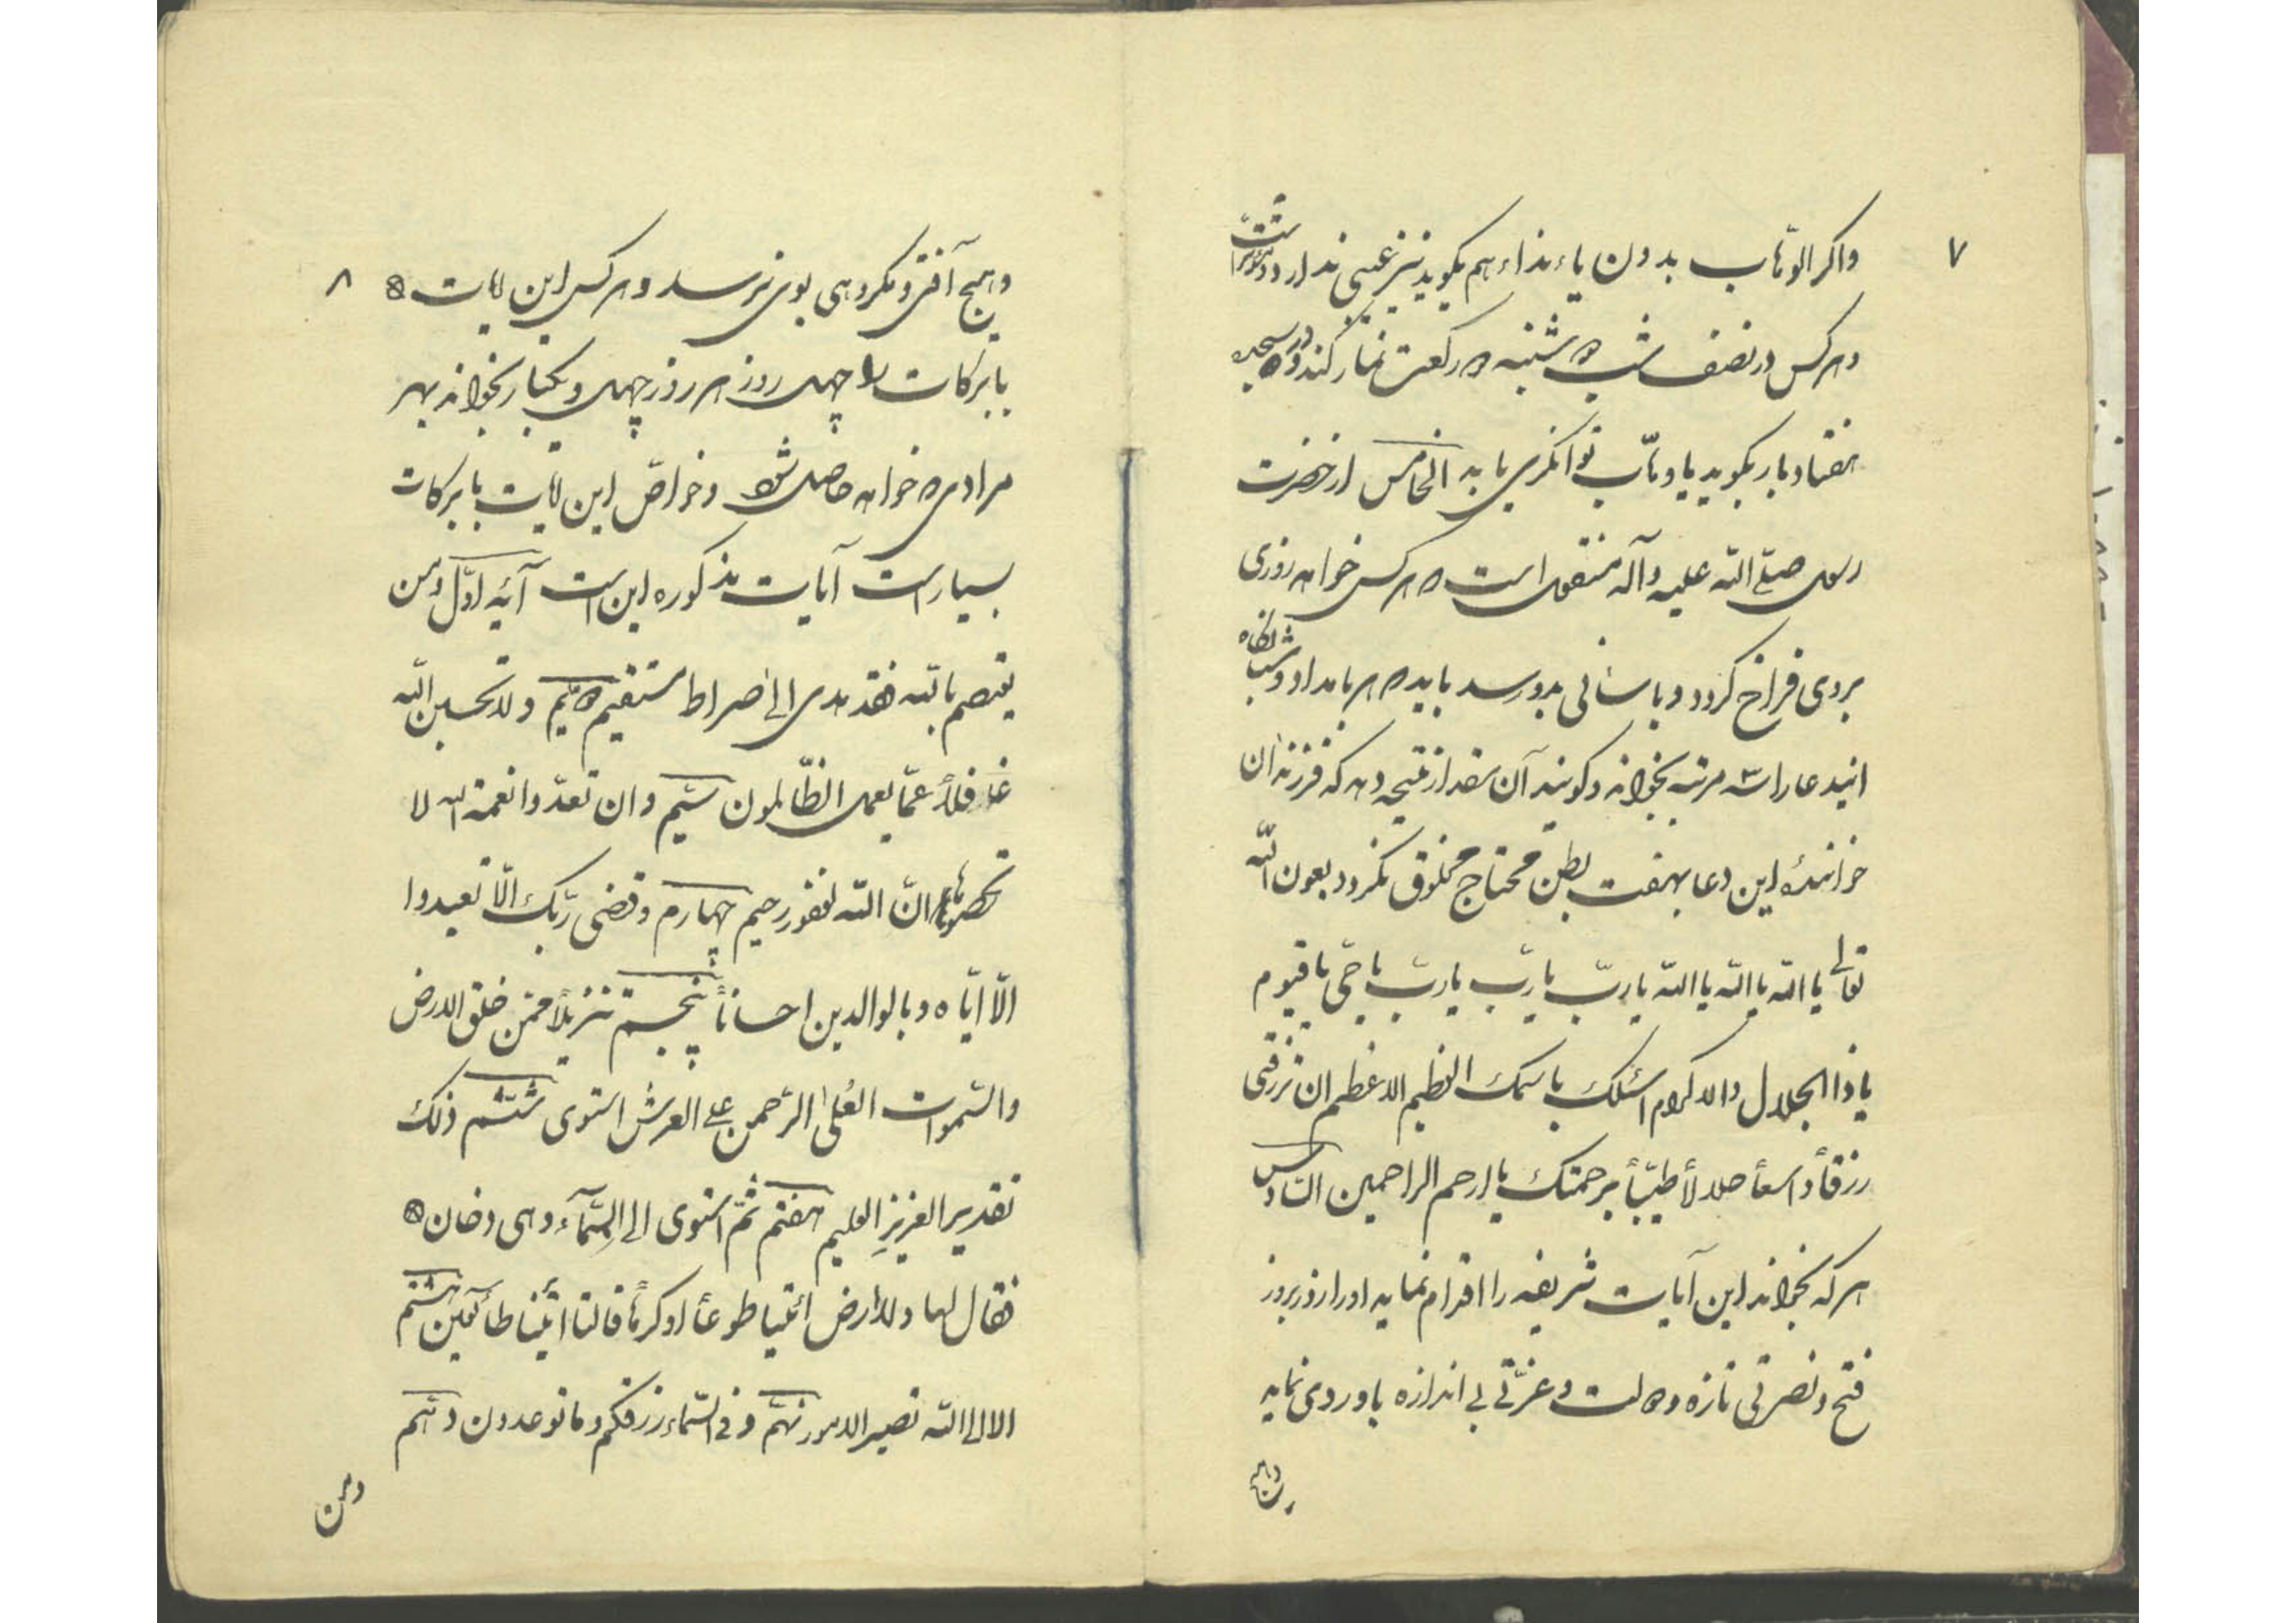 ۷
واکر الوهّاب بدون یاء نداء هم بکوید نیز عیبی ندارد
و هر کس در نصف شب شنبه دو رکعت نماز کند و در سجده
هفتاد بار بکوید یا وهّاب توانکری یابد الخامس از حضرت
رسول صلّی اللّه علیه و آله منقول است که هر کس خواهد روزی
بروی فراخ کردد و باسانی بدو رسد باید که هر بامداد و شبانکاه
ایندعا را سه مرتبه بخواند و کویند آن مقدار نتیجه دهد که فرزندان
خوانندهٔ این دعا بهفت بطن محتاج مخلوق نکردد بعون اللّه
تعالی یا اللّه یا اللّه یا اللّه یا ربّ یا ربّ یا ربّ یا حیّ یا قیّوم
یا ذا الجلال والاکرام اسئلک باسمک العظیم الاعظم ان ترزقنی
رزقاً واسعاً حلالاً طیّباً برحمتک یا ارحم الراحمین السّادس
هر که بخواند این آیات شریفه را اقدام نماید او را روز بروز
فتح و نصرتی تازه و دولت و عزّتی بی اندازه باو روی نماید
و هیچ
۸
و هیچ آفتی و مکروهی بوی نرسد و هر کس این آیات
با برکات را چهل روز هر روز چهل و یکبار بخواند بهر
مرادی که خواهد حاصل شود و خواصّ این آیات با برکات
بسیار است آیات مذکوره این است آیه اوّل ومن
یعتصم باللّه فقد هدی الی صراط مستقیم دویّم ولا تحسبن اللّه
غافلاً عمّا یعمل الظّالمون سیّم وان تعدّوا نعمة اللّه لا
تحصوها انّ اللّه لغفور رحیم چهارم وقضی ربّک الّا تعبدوا
الّا ایّاه وبالوالدین احساناً پنجم تنزیلاً ممّن خلق الارض
والسّموات العُلی الرّحمن علی العرش استوی ششم ذلک
تقدیر العزیز العلیم هفتم ثمّ استوی الی السّمآء وهی دخان
فقال لها وللارض ائتیا طوعاً او کرهاً قالتا اتینا طآئعین هشتم
الا الی اللّه تصیر الامور نهم و فی السّماء رزقکم وما توعدون دهم
ومن